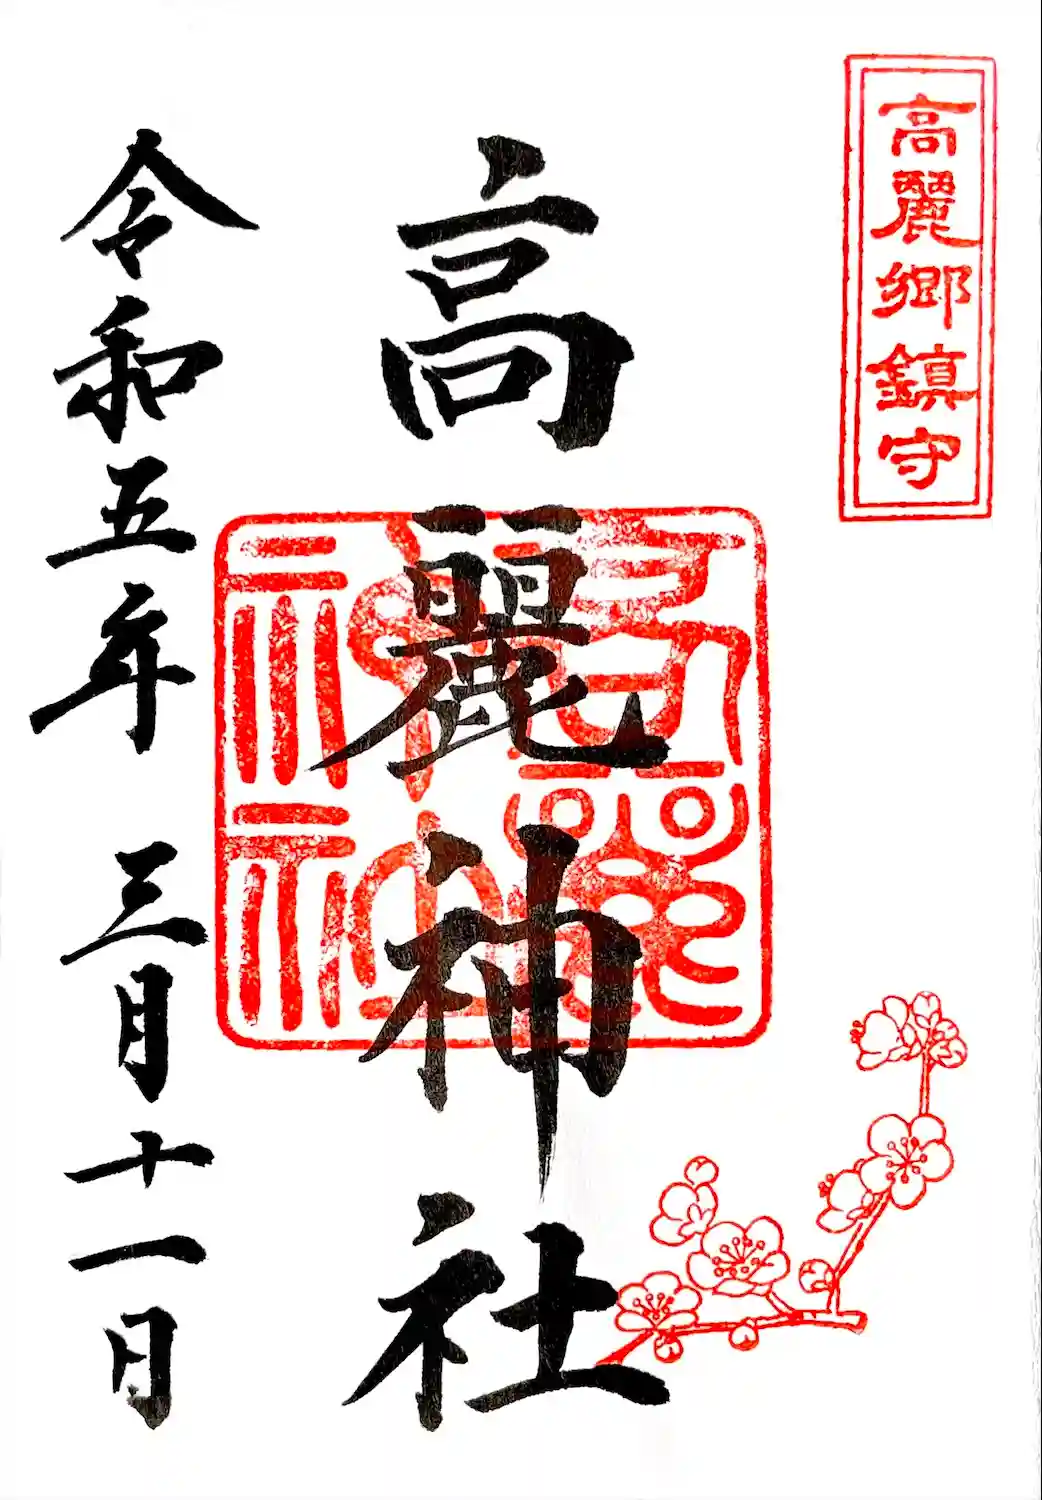 高麗郷鎮守
高麗神社
高麗神社
令和五年 三月十一日